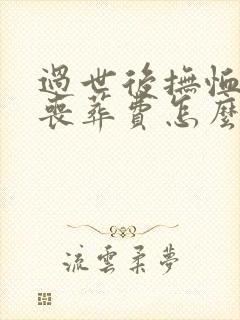 過世後撫恤
喪葬費怎麼
流雲柔夢